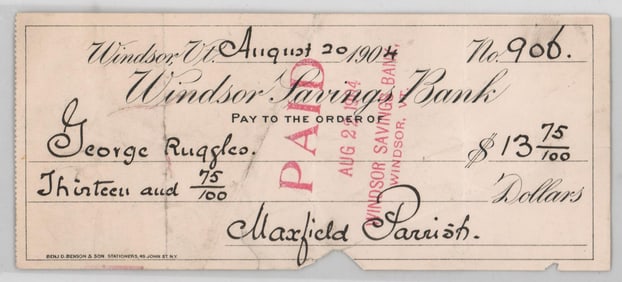 Windsor, Vt. August 20 1904 No. 906.
Windsor Savings Bank
PAY TO THE ORDER OF
George Ruggles. $ 13 75/100
Thirteen and 75/100 Dollars
Maxfield Parrish.
BENJ D. BENSON & SON STATIONERS, 49 JOHN ST. N.Y.
PAID
AUG 22 1904
WINDSOR SAVINGS BANK,
WINDSOR, VT.